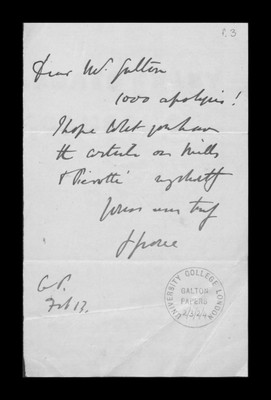 P. 3
Dear Mr. Galton
1000 apologies!
I hope that you have
the article on Mills
&
yours very truly
G. P.
Feb 13.
UNIVERSITY COLLEGE LONDON
GALTON
PAPERS